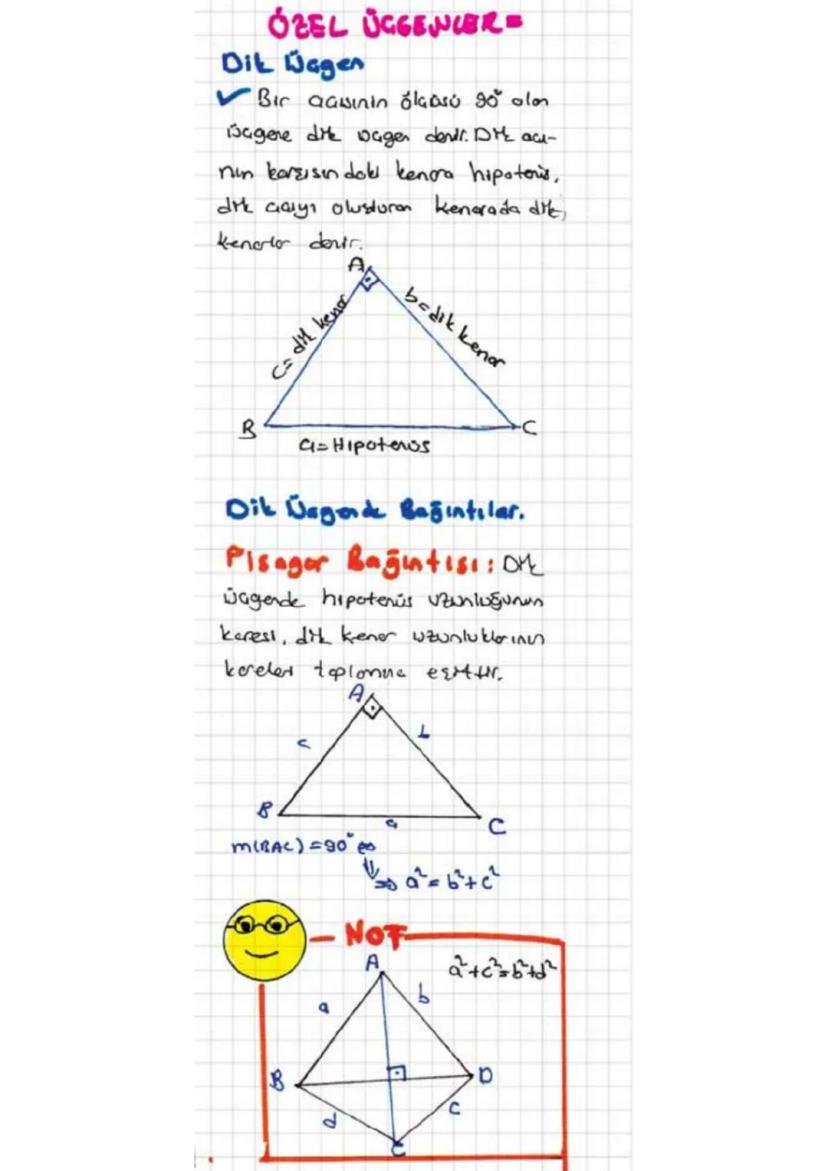 ÖZEL ÜÇGENLER=
Dik Üçgen
✓ Bir açısının ölçüsü 90° olan
üçgene dik üçgen denir. Dik açı-
nın karşısındaki kenara hipotenüs,
dik açıyı oluşturan kenarada dik
kenarlar denir.
A
c= dik kenar
b=dik kenar
B
C
a=Hipotenüs
Dik Üçgende Bağıntılar.
Pisagor Bağıntısı: Dik
üçgende hipotenüs uzunluğunun
karesi, dik kenar uzunluklarının
kareleri toplamına eşittir.
A
c
b
B
a
C
m(BAC)=90°
⇒ a²=b²+c²
NOT
A
a²+c²=b²+d²
a
b
B
D
d
c
C